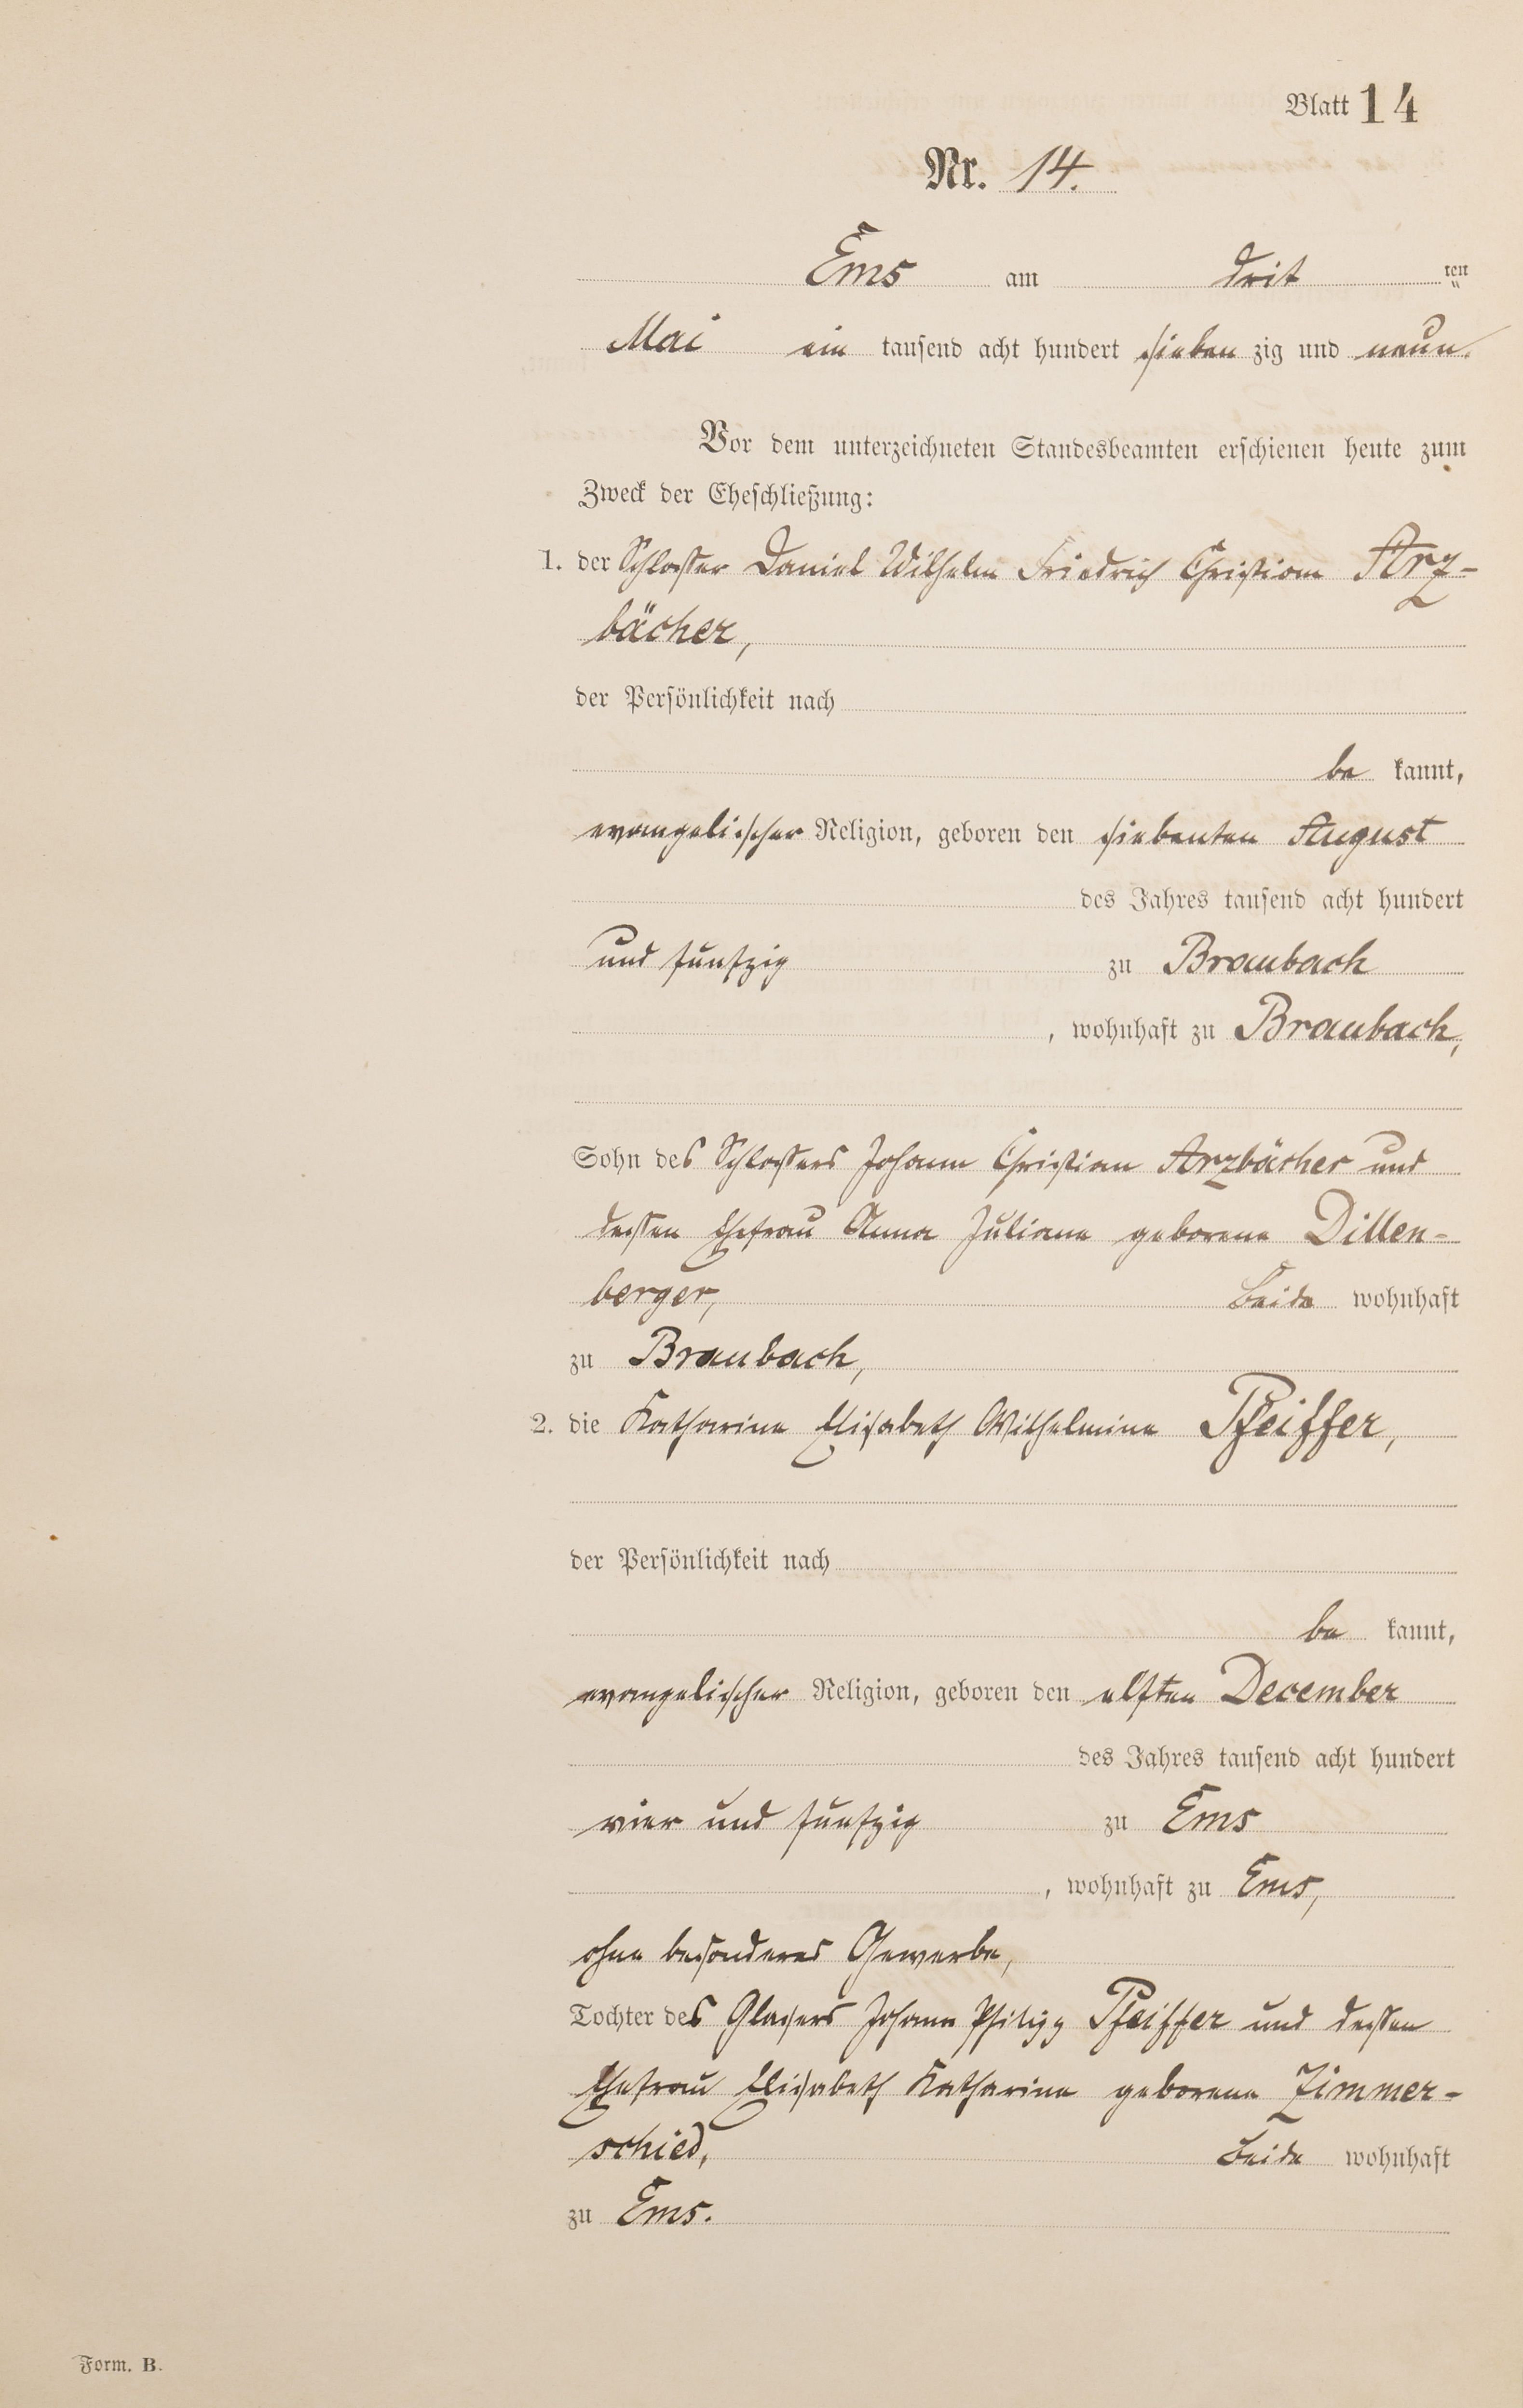 Blatt 14
Nr. 14.
Ems am dritten
Mai ein tausend acht hundert sieben zig und neun.
Vor dem unterzeichneten Standesbeamten erschienen heute zum
Zweck der Eheschließung:
1. der Schlosser Daniel Wilhelm Friedrich Christian Arz-
bächer,
der Persönlichkeit nach
be kannt,
evangelischer Religion, geboren den siebenten August
des Jahres tausend acht hundert
und funfzig zu Braubach
, wohnhaft zu Braubach,
Sohn des Schlossers Johann Christian Arzbächer und
dessen Ehefrau Anna Juliane geborene Dillen-
berger, beide wohnhaft
zu Braubach,
2. die Katharine Elisabeth Wilhelmine Pfeiffer,
der Persönlichkeit nach
be kannt,
evangelischer Religion, geboren den elften December
des Jahres tausend acht hundert
vier und funfzig zu Ems
, wohnhaft zu Ems,
ohne besonderes Gewerbe,
Tochter des Glasers Johann Philipp Pfeiffer und dessen
Ehefrau Elisabeth Katharine geborene Zimmer-
schied, beide wohnhaft
zu Ems.
Form. B.